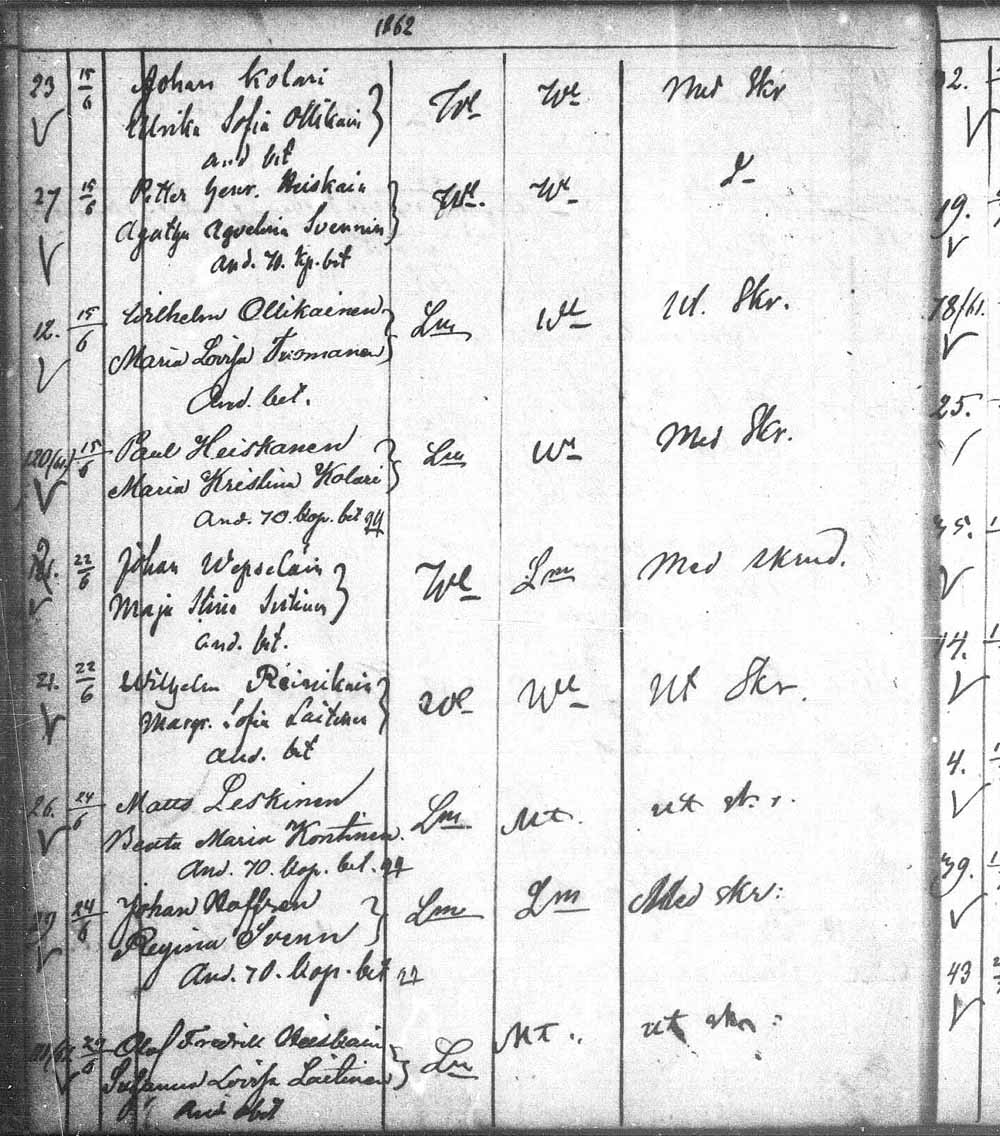 1862
23 15/6 Johan Kolari
Ulrika Sofia Ollikain } Wl Wl Med Skr
and bet
27 15/6 Petter Henr. Heiskain
Agatha Svennin } Wl. Wl D
and. 70. kp. bet
12. 15/6 Wilhelm Ollikainen
Maria Lovisa Tuomanen } Lm Wl Ut. Skr.
And. bet.
120/61. 15/6 Paul Heiskanen
Maria Kristina Kolari } Lm Wl Med Skr.
And. 70. kop. bet 24
22/6 Johan Wepselain
Maja Stina } Wl Lm Med skrud.
and. bet.
21. 22/6 Wilhelm Reinikain
Margr. Sofia Laitinen } Wl Wl Ut Skr.
and. bet
26. 24/6 Matts Leskinen
Beata Maria Kontinen Lm Mt. ut sk.
And. 70. kop. bet. 24
29 24/6 Johan Haffren
Regina Svenn } Lm Lm Med skr:
And. 70. kop. bet 22
29/6 Olof Fredrik Heiskain
Susanna Lovisa Laitinen } Lm Mt.. ut skr:
And bet
19.
18/61.
25.
35.
14.
4.
39.
43